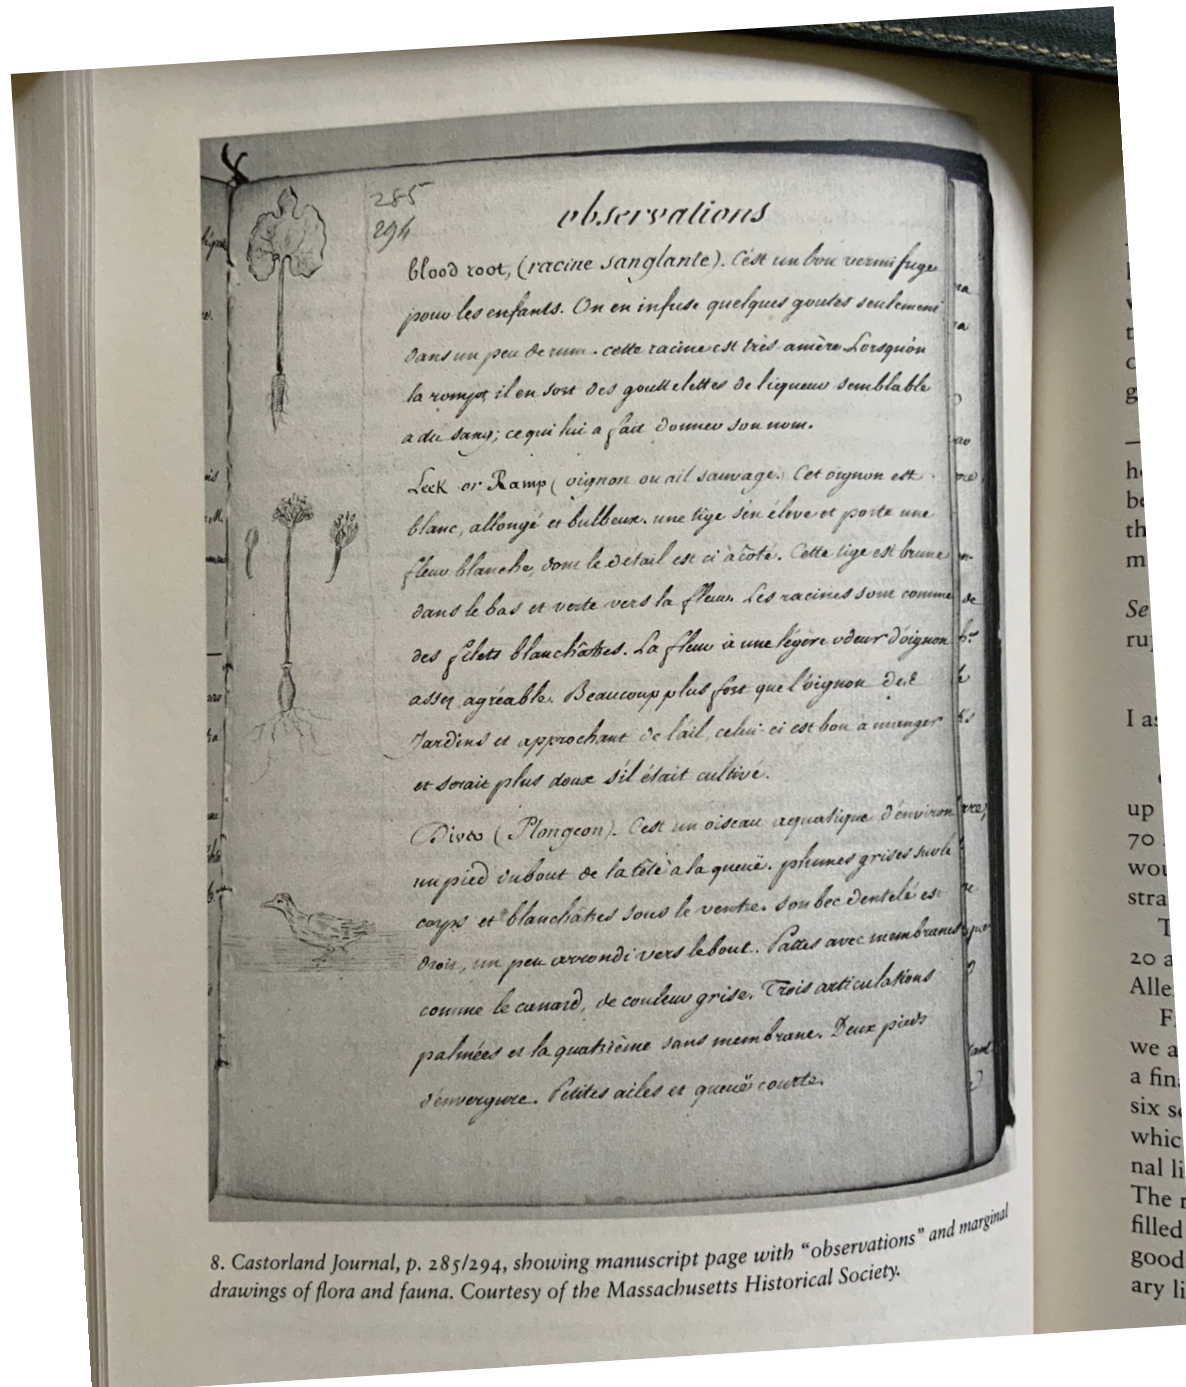 285
294
observations
blood root, (racine sanglante). C'est un bon vermifuge
pour les enfants. On en infuse quelques goutes seulement
dans un peu de rum. cette racine est très amère. Lorsqu'on
la rompt, il en sort des gouttelettes de liqueur semblable
a du sang; ce qui lui a fait donner son nom.
Leek or Ramp (oignon ou ail sauvage.) Cet oignon est
blanc, allongé et bulbeux. une tige s'en élève et porte une
fleur blanche, dont le détail est ci à côté. Cette tige est brune
dans le bas et verte vers la fleur. Les racines sont comme
des filets blanchâtres. La fleur à une légère odeur d'oignon
assez agréable. Beaucoup plus fort que l'oignon des
Jardins et approchant de l'ail, celui-ci est bon à manger
et serait plus doux s'il était cultivé.
Diver (Plongeon). C'est un oiseau aquatique d'environ
un pied du bout de la tête à la queuë. plumes grises sur le
corps et blanchâtres sous le ventre. Son bec dentelé est
droit, un peu arrondi vers le bout. Pattes avec membranes
comme le canard, de couleur grise. Trois articulations
palmées et la quatrième sans membrane. Deux pieds
d'envergure. Petites ailes et queuë courte.
8. Castorland Journal, p. 285/294, showing manuscript page with “observations” and marginal
drawings of flora and fauna. Courtesy of the Massachusetts Historical Society.
Se
I as
up
70
wou
stra
T
20 a
Alle
F
we a
a fin
six s
whic
nal li
The r
filled
good
ary li